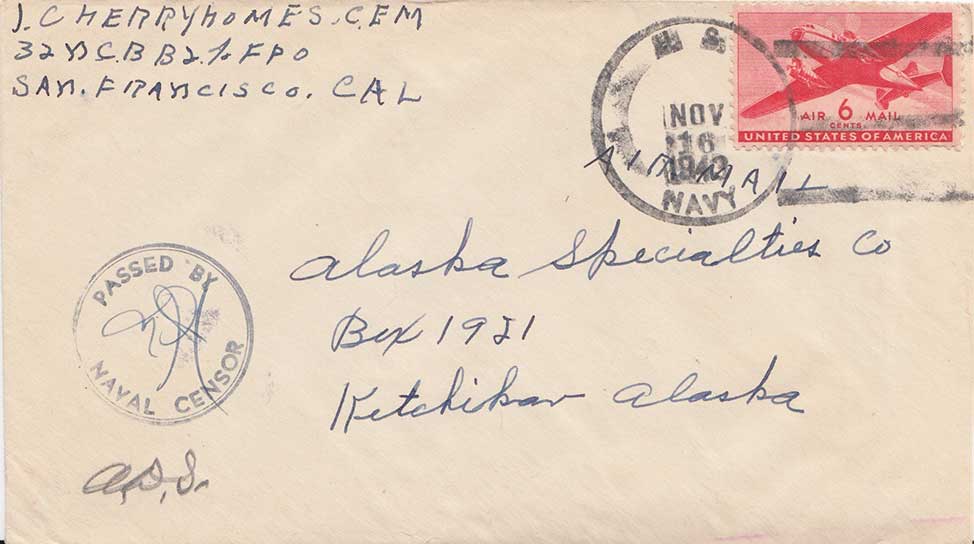 J. CHERRYHOMES. CEM
32ND C.B B2 % FPO
SAN. FRANCISCO. CAL
U. S.
NOV
16
1942
NAVY
AIR 6 MAIL
CENTS
UNITED STATES OF AMERICA
AIR MAIL
Alaska Specialties Co
Box 1921
Ketchikan Alaska
PASSED BY
NAVAL CENSOR